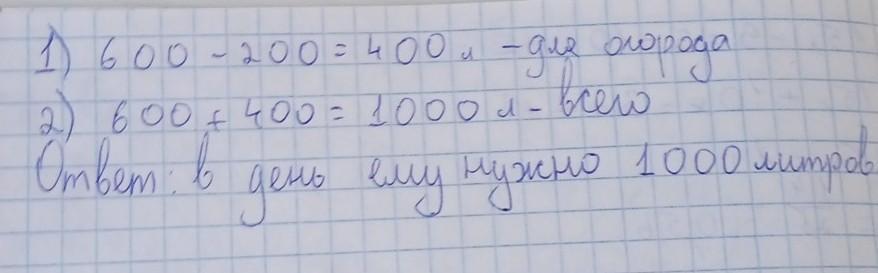 1) 600 - 200 = 400 л - для огорода
2) 600 + 400 = 1000 л - всего
Ответ: в день ему нужно 1000 литров